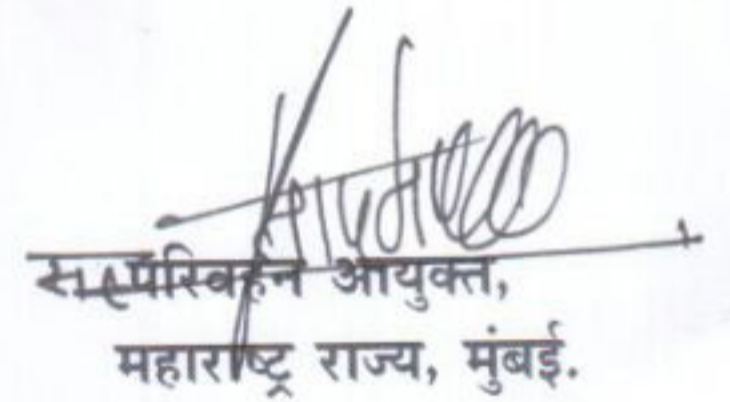 सह परिवहन आयुक्त,
महाराष्ट्र राज्य, मुंबई.